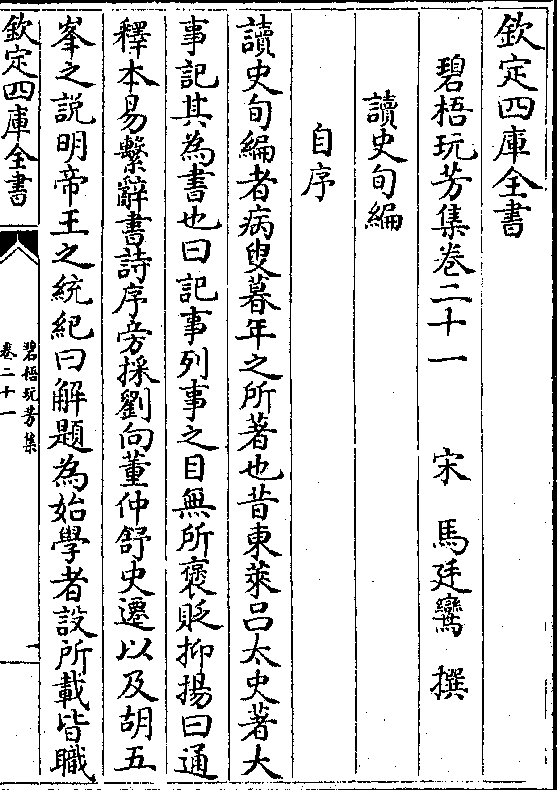 欽定四庫全書
碧梧玩芳集卷二十一 宋 馬廷鸞 撰
讀史旬編
自序
讀史旬編者病叟暮年之所著也昔東萊呂太史著大
事記其為書也曰記事列事之目無所褒貶抑揚曰通
釋本易繫辭書詩序旁採劉向董仲舒史遷以及胡五
峯之説明帝王之統紀曰解題為始學者設所載皆職
欽定四庫全書
碧梧玩芳集
卷二十一
一